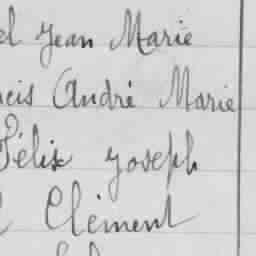 el Jean Marie
cis André Marie
Félix Joseph
Clément